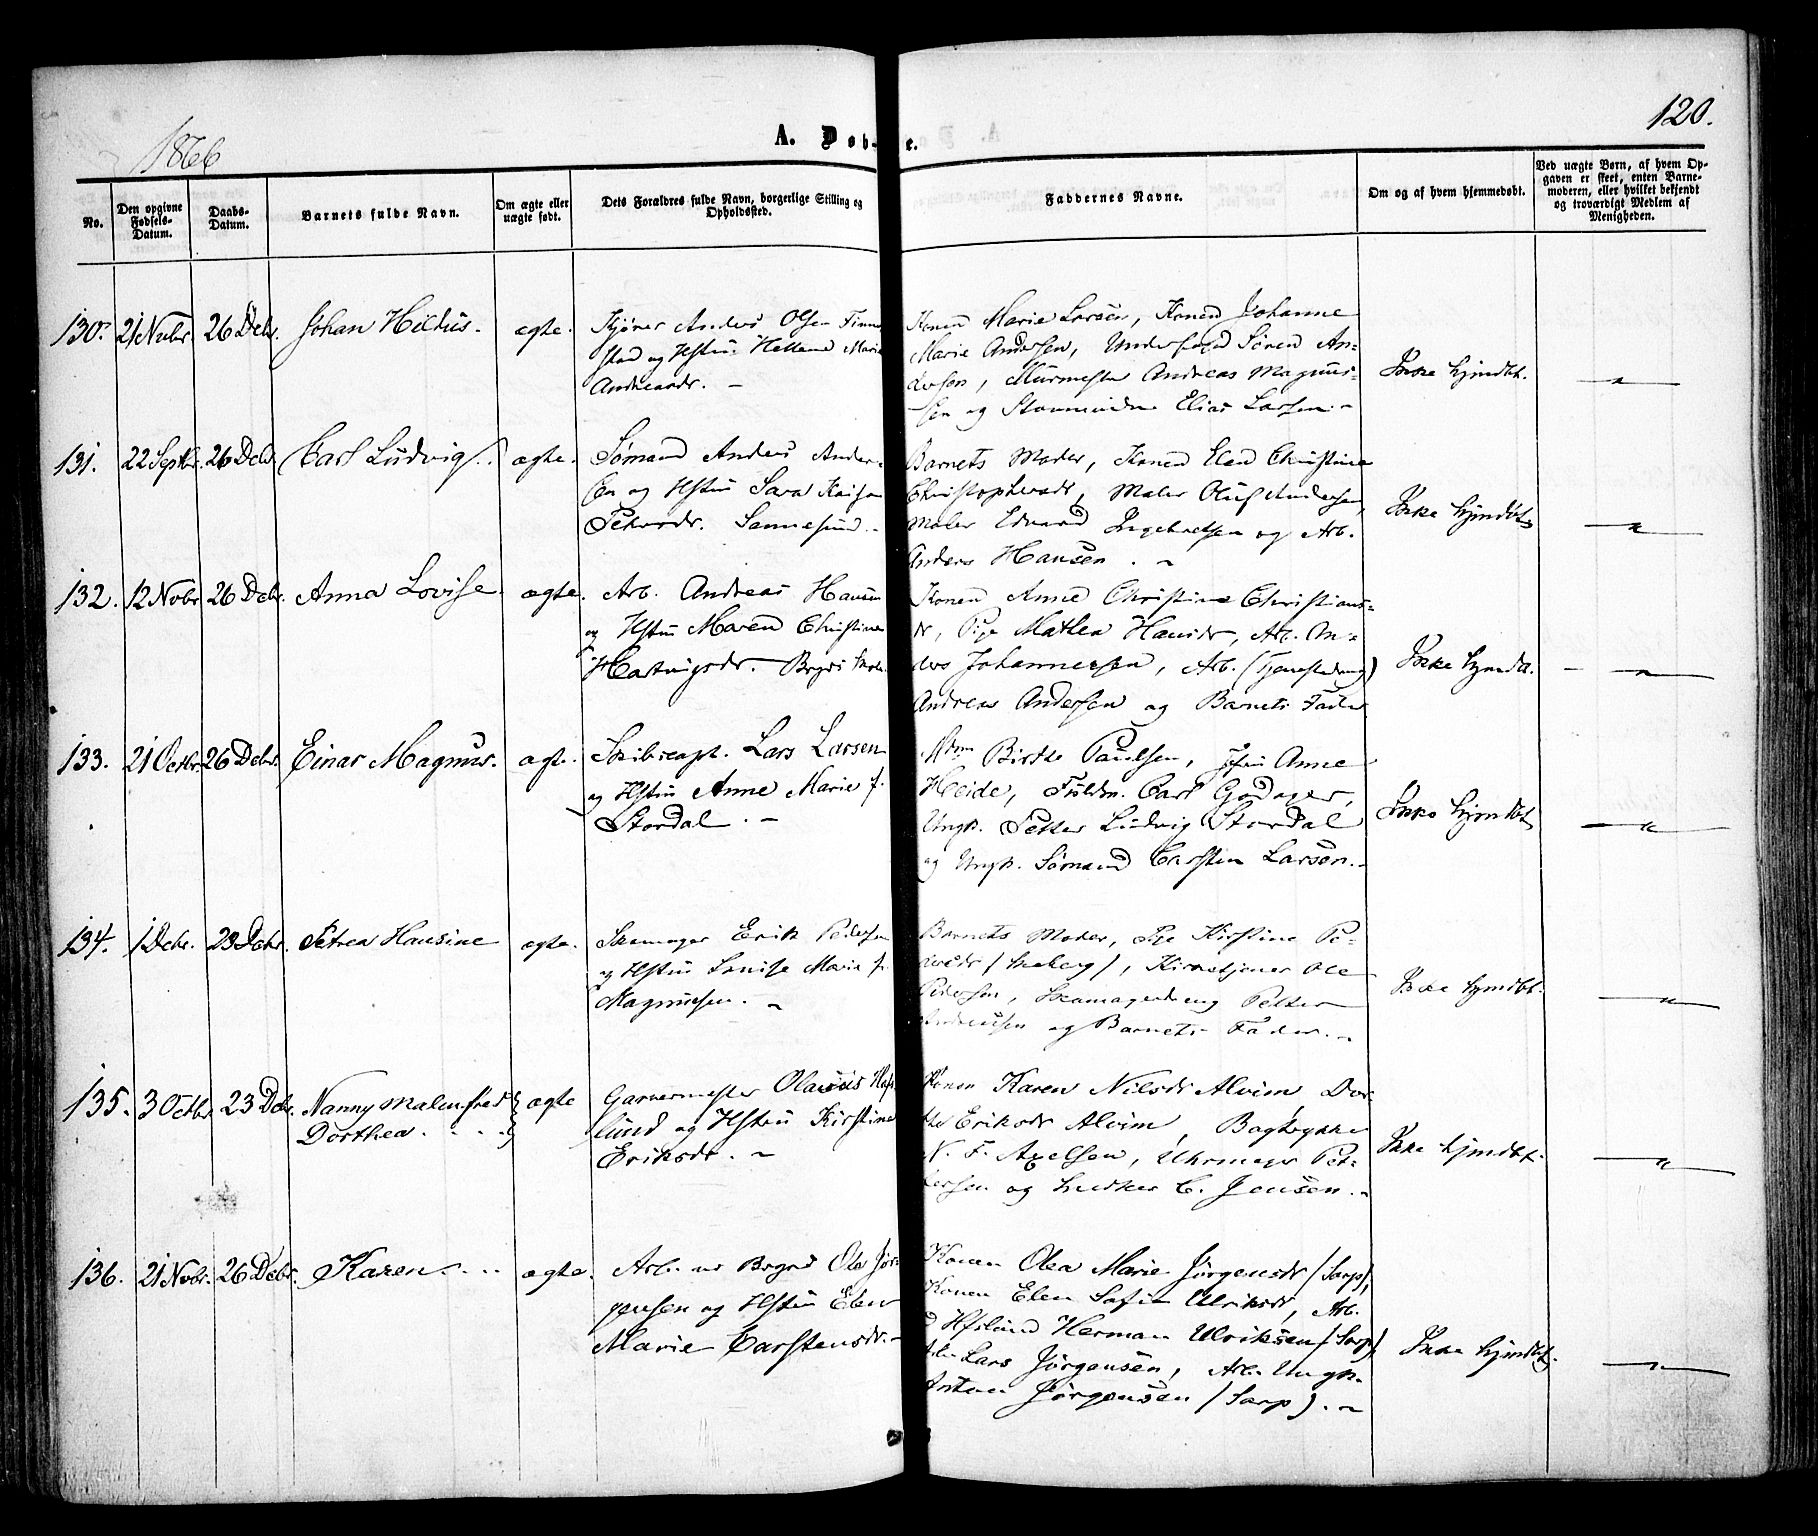 1866
A. Døb- e.
120.
No.
Den opgivne Fødsels-Datum.
Daabs-Datum.
Barnets fulde Navn.
Om ægte eller uægte født.
Dets Forældres fulde Navn, borgerlige Stilling og Opholdssted.
Faddernes Navne.
Om og af hvem hjemmedøbt.
Ved uægte Børn, af hvem Opgaven er skeet, enten Barnemoderen, eller hvilket bekjendt og troværdigt Medlem af Menigheden.
130. 21 Nvbr. 26 Debr. Johan Hildus. ægte.
Anders Olsen Finne
stad og Hstru Hellene Marie
Andreasdr. -
Konen Marie Larsen, Konen Johanne
Marie Andersen, Søren An-
dersen, Murmester Andreas Magnus-
sen og Elias Larsen. -
Ikke hjmdbt.
131. 22 Septbr. 26 Debr. Carl Ludvig. ægte.
Sømand Anders Ander-
sen og Hstru Sara Kaisa
Petersdr. Sannesund. -
Barnets Moder, Konen Elen Christine
Christophersdr, Maler Oluf Andersen,
Maler Edvard Ingebretsen og Arb.
Anders Hansen. -
Ikke hjmdbt.
132. 12 Novbr. 26 Debr. Anna Lovise ægte.
Arb. Andreas Hansen
og Hstru Maren Christine
Hartvigsdr.
Konen Anne Christine Christians-
dr, Pige Mathea Hansdr, Arb. An-
ders Johannesen, Arb. (Tjenestedreng)
Andreas Andersen og Barnets Fader
Ikke hjmdbt.
133. 21 Octbr. 26 Debr. Einar Magnus. ægte.
Skibscapt. Lars Larsen
og Hstru Anne Marie f.
Stordal. -
Mdm Birthe Paulsen, Jfru Anne
Heide, Fuldm. Carl Godager,
Ungk. Petter Ludvig Stordal
og Ungk. Sømand Carsten Larsen. -
Ikke hjmdbt.
134. 1 Debr. 23 Debr. Petrea Hansine ægte.
Skomager Erik Pedersen
og Hstru Louise Marie f.
Magnussen. -
Barnets Moder, Pige Kirstine Pe-
dersdr, Kirketjener Ole
Pedersen, Skomagerdreng Petter
og Barnets Fader. -
Ikke hjmdbt.
135. 3 Octbr. 23 Debr. Nanny Malenfred
Dorthea. ægte
Garvermester Olaus Haf-
lund og Hstru Kirstine
Eriksdr. -
Konen Karen Nilsdr Alvim Dor-
the Eriksdr Alvim,
N. F. Axelsen, Uhrmager Pet-
tersen og Snedker C. Jensen. -
Ikke hjmdbt.
136. 21 Novbr. 26 Debr. Karen. ægte.
Arb. Ole Jør-
gensen og Hstru Elen
Marie Carstensdr. -
Konen Olea Marie Jørgensdr (Sarp),
Konen Elen Sofie Ulriksdr, Arb.
Hafslund Herman Ulriksen (Sarp)
Lars Jørgensen, Arb. Ungk.
Anton Jørgensen (Sarp). -
Ikke hjmdbt.